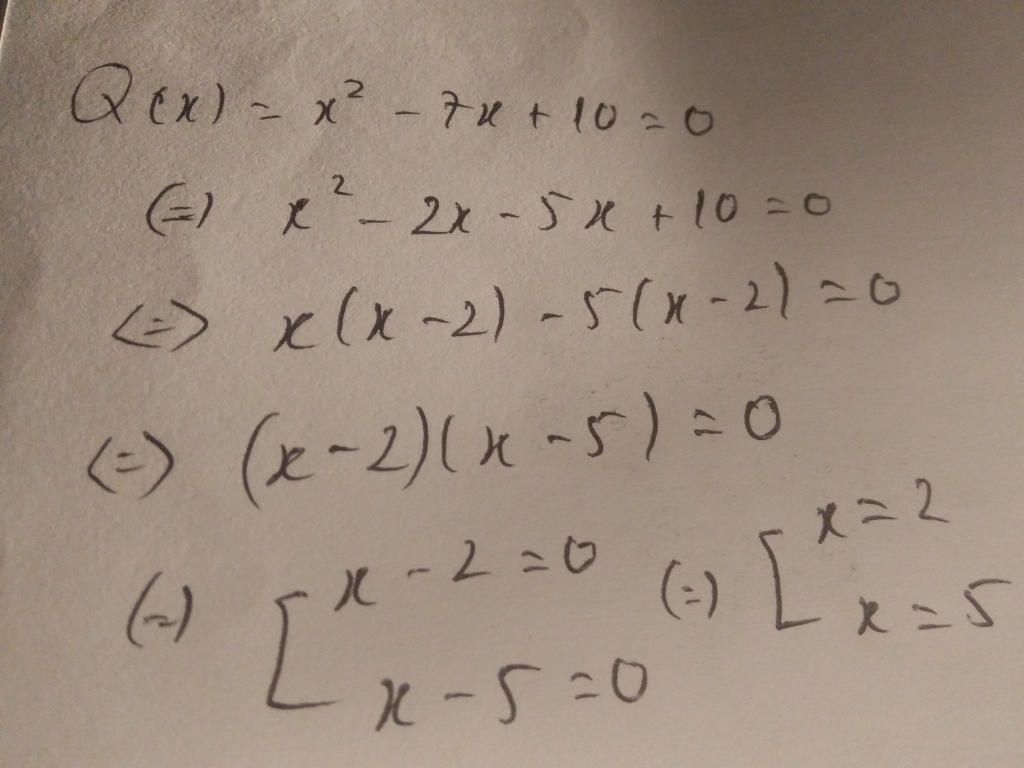 Q(x) = x² - 7x + 10 = 0
(=) x² - 2x - 5x + 10 = 0
<=> x(x - 2) - 5(x - 2) = 0
<=> (x - 2)(x - 5) = 0
(=) [ x - 2 = 0 (=) [ x = 2
x - 5 = 0 x = 5